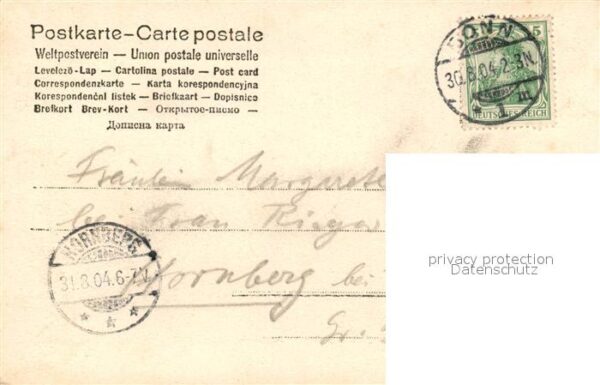 Postkarte – Carte postale
Weltpostverein — Union postale universelle
Levelező-Lap — Cartolina postale — Post card
Correspondenzkarte — Karta korespondencyjna
Korespondenční lístek — Briefkaart — Dopisnice
Brefkort Brev-Kort — Открытое-писмо —
Дописна карта
BONN
30.8.04.2-3N.
1 m
5
DEUTSCHES REICH
Fräulein Margarete
bei Frau
HORNBERG
31.8.04.6-7N.
Hornberg bei
privacy protection
Datenschutz